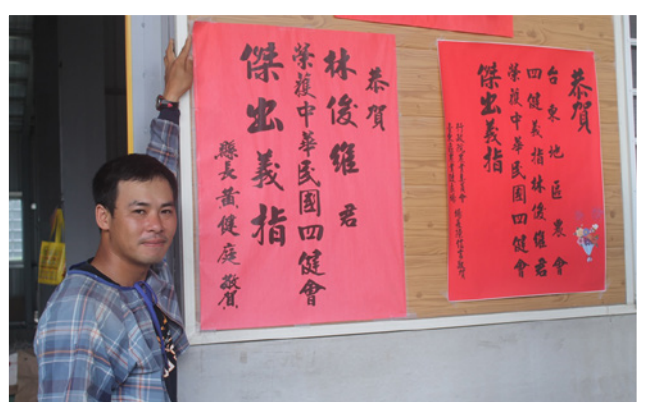 恭賀
林俊維 君
榮獲中華民國四健會
傑出義指
縣長黃健庭 敬賀
恭賀
台東地區農會
四健義指林俊維君
榮獲中華民國四健會
傑出義指
行政院農業委員會